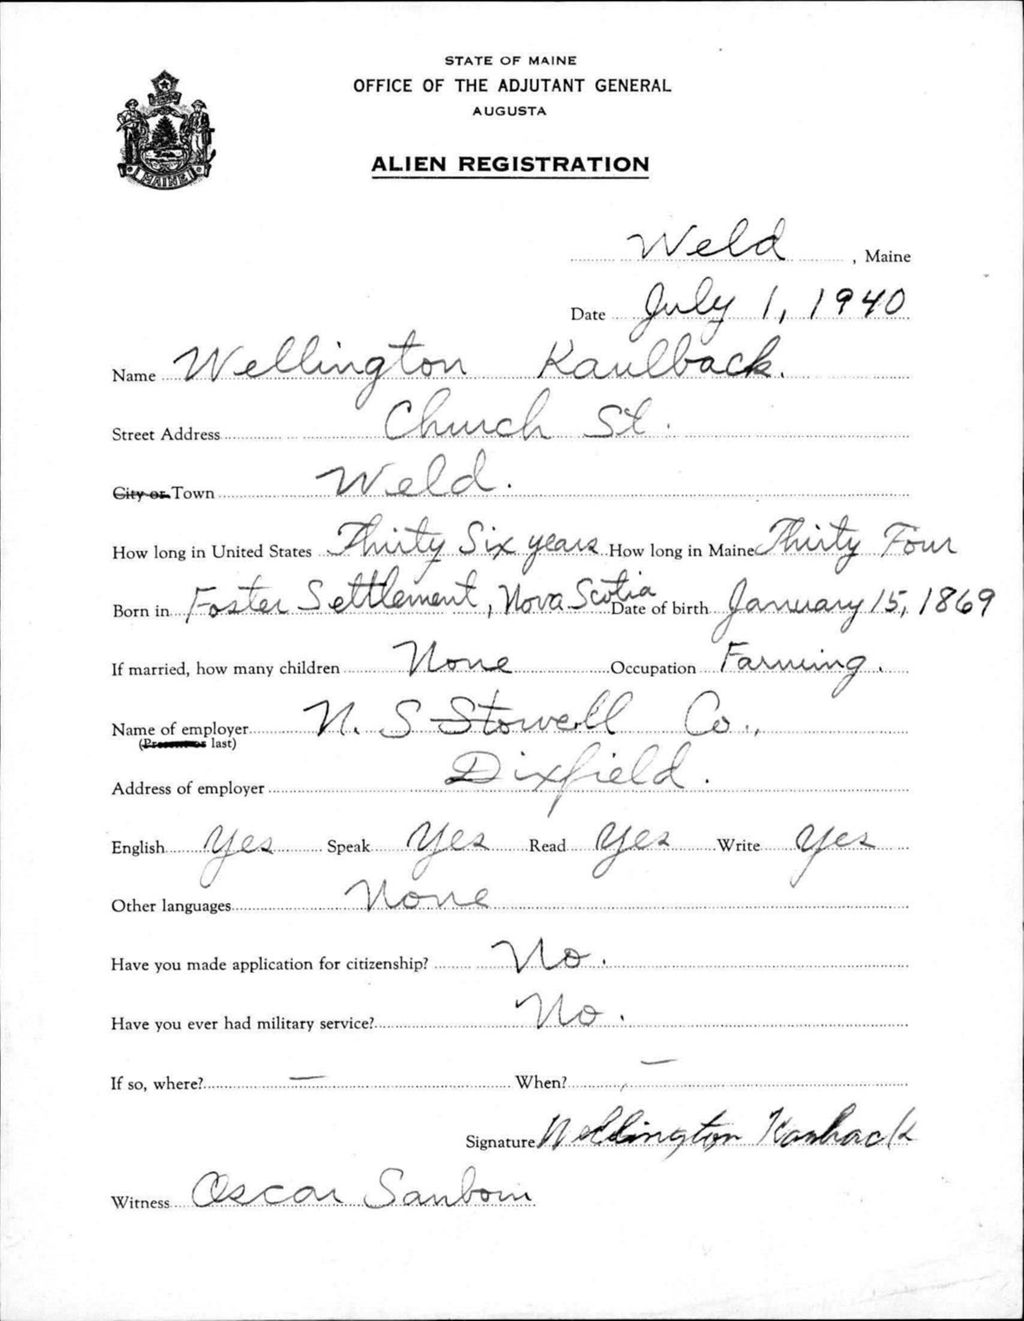 STATE OF MAINE
OFFICE OF THE ADJUTANT GENERAL
AUGUSTA
ALIEN REGISTRATION
MAINE
Weld, Maine
Date July 1, 1940
Name Wellington Kaulback.
Street Address Church St.
City or Town Weld.
How long in United States Thirty Six years How long in Maine Thirty Four
Born in Foster Settlement, Nova Scotia Date of birth January 15, 1869
If married, how many children None Occupation Farming.
Name of employer N. S Stowell Co.,
(Present or last)
Address of employer Dixfield.
English Yes Speak Yes Read Yes Write Yes
Other languages None
Have you made application for citizenship? No.
Have you ever had military service? No.
If so, where? — When? —
Signature Wellington Kaulback
Witness Oscar Sanborn